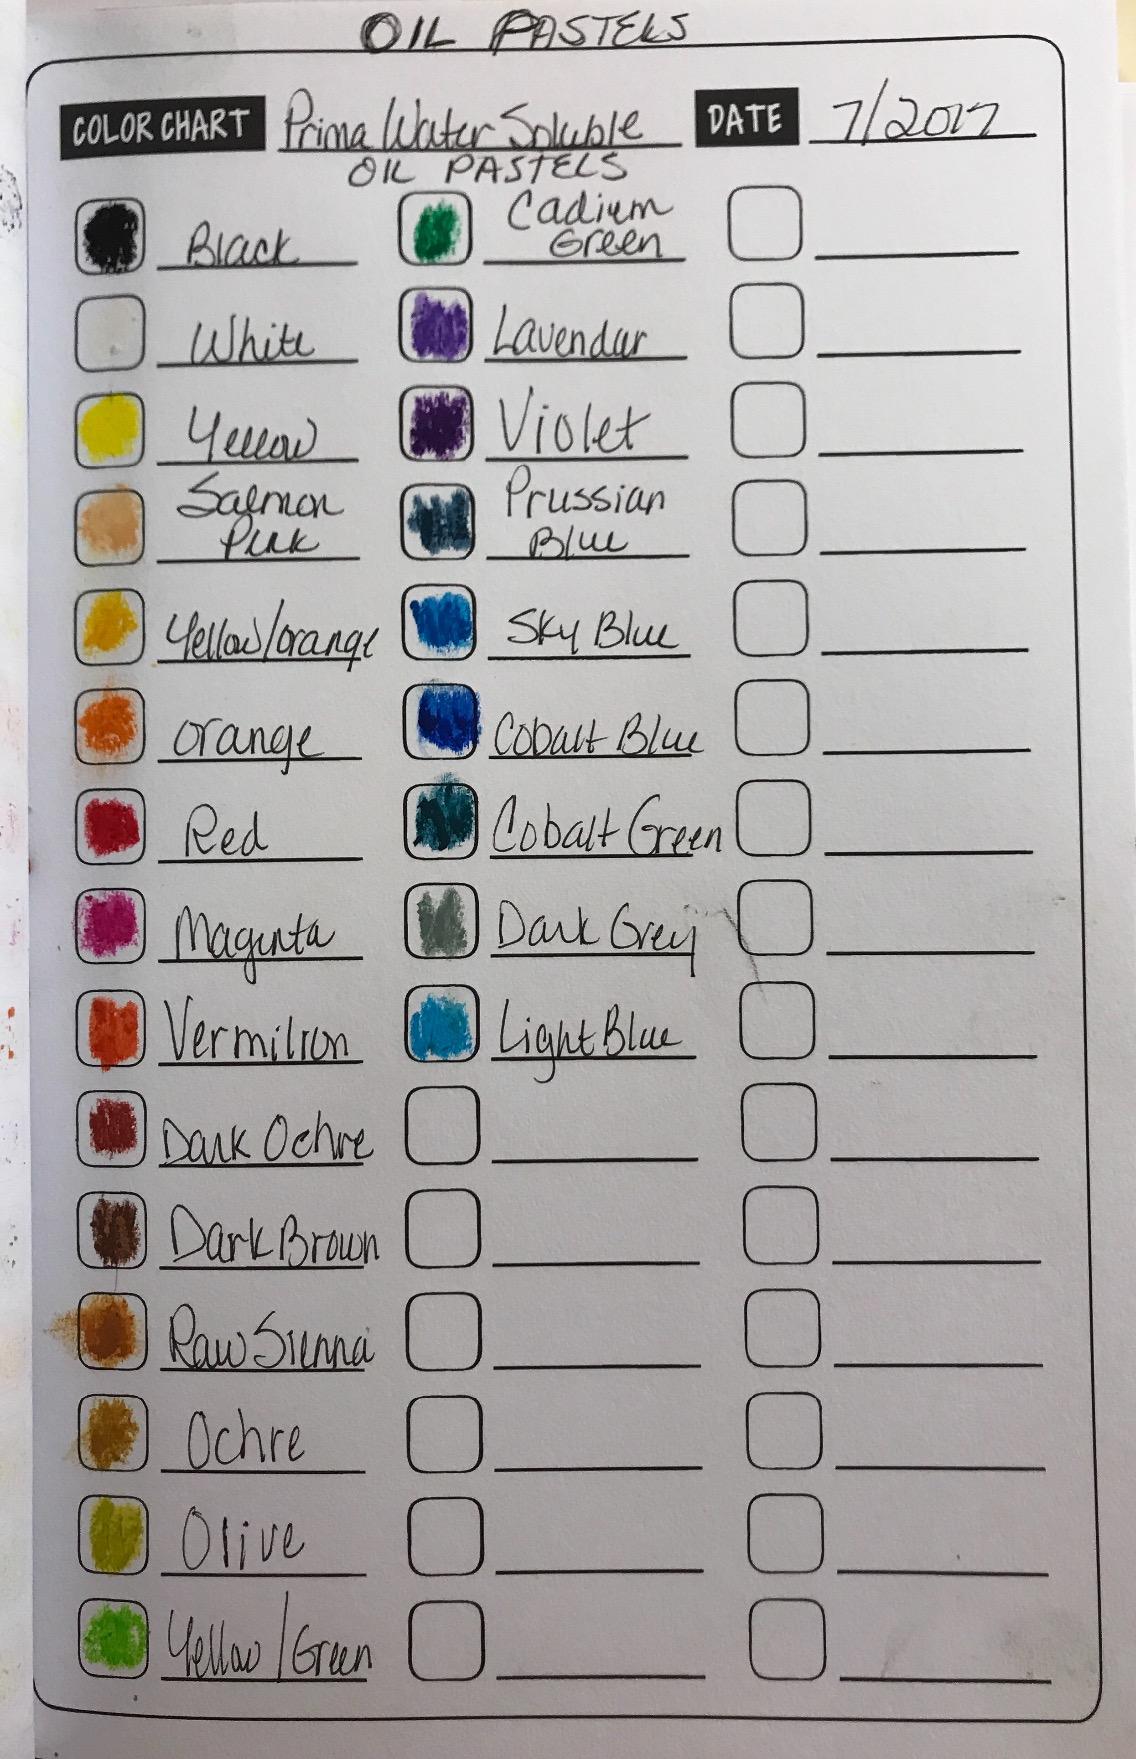 OIL PASTELS
COLOR CHART Prima Water Soluble DATE 7/2017
OIL PASTELS
Black
White
Yellow
Salmon
Pink
Yellow/orange
orange
Red
Magenta
Vermilion
Dark Ochre
Dark Brown
Raw Sienna
Ochre
Olive
Yellow/Green
Cadium
Green
Lavendar
Violet
Prussian
Blue
Sky Blue
Cobalt Blue
Cobalt Green
Dark Grey
Light Blue